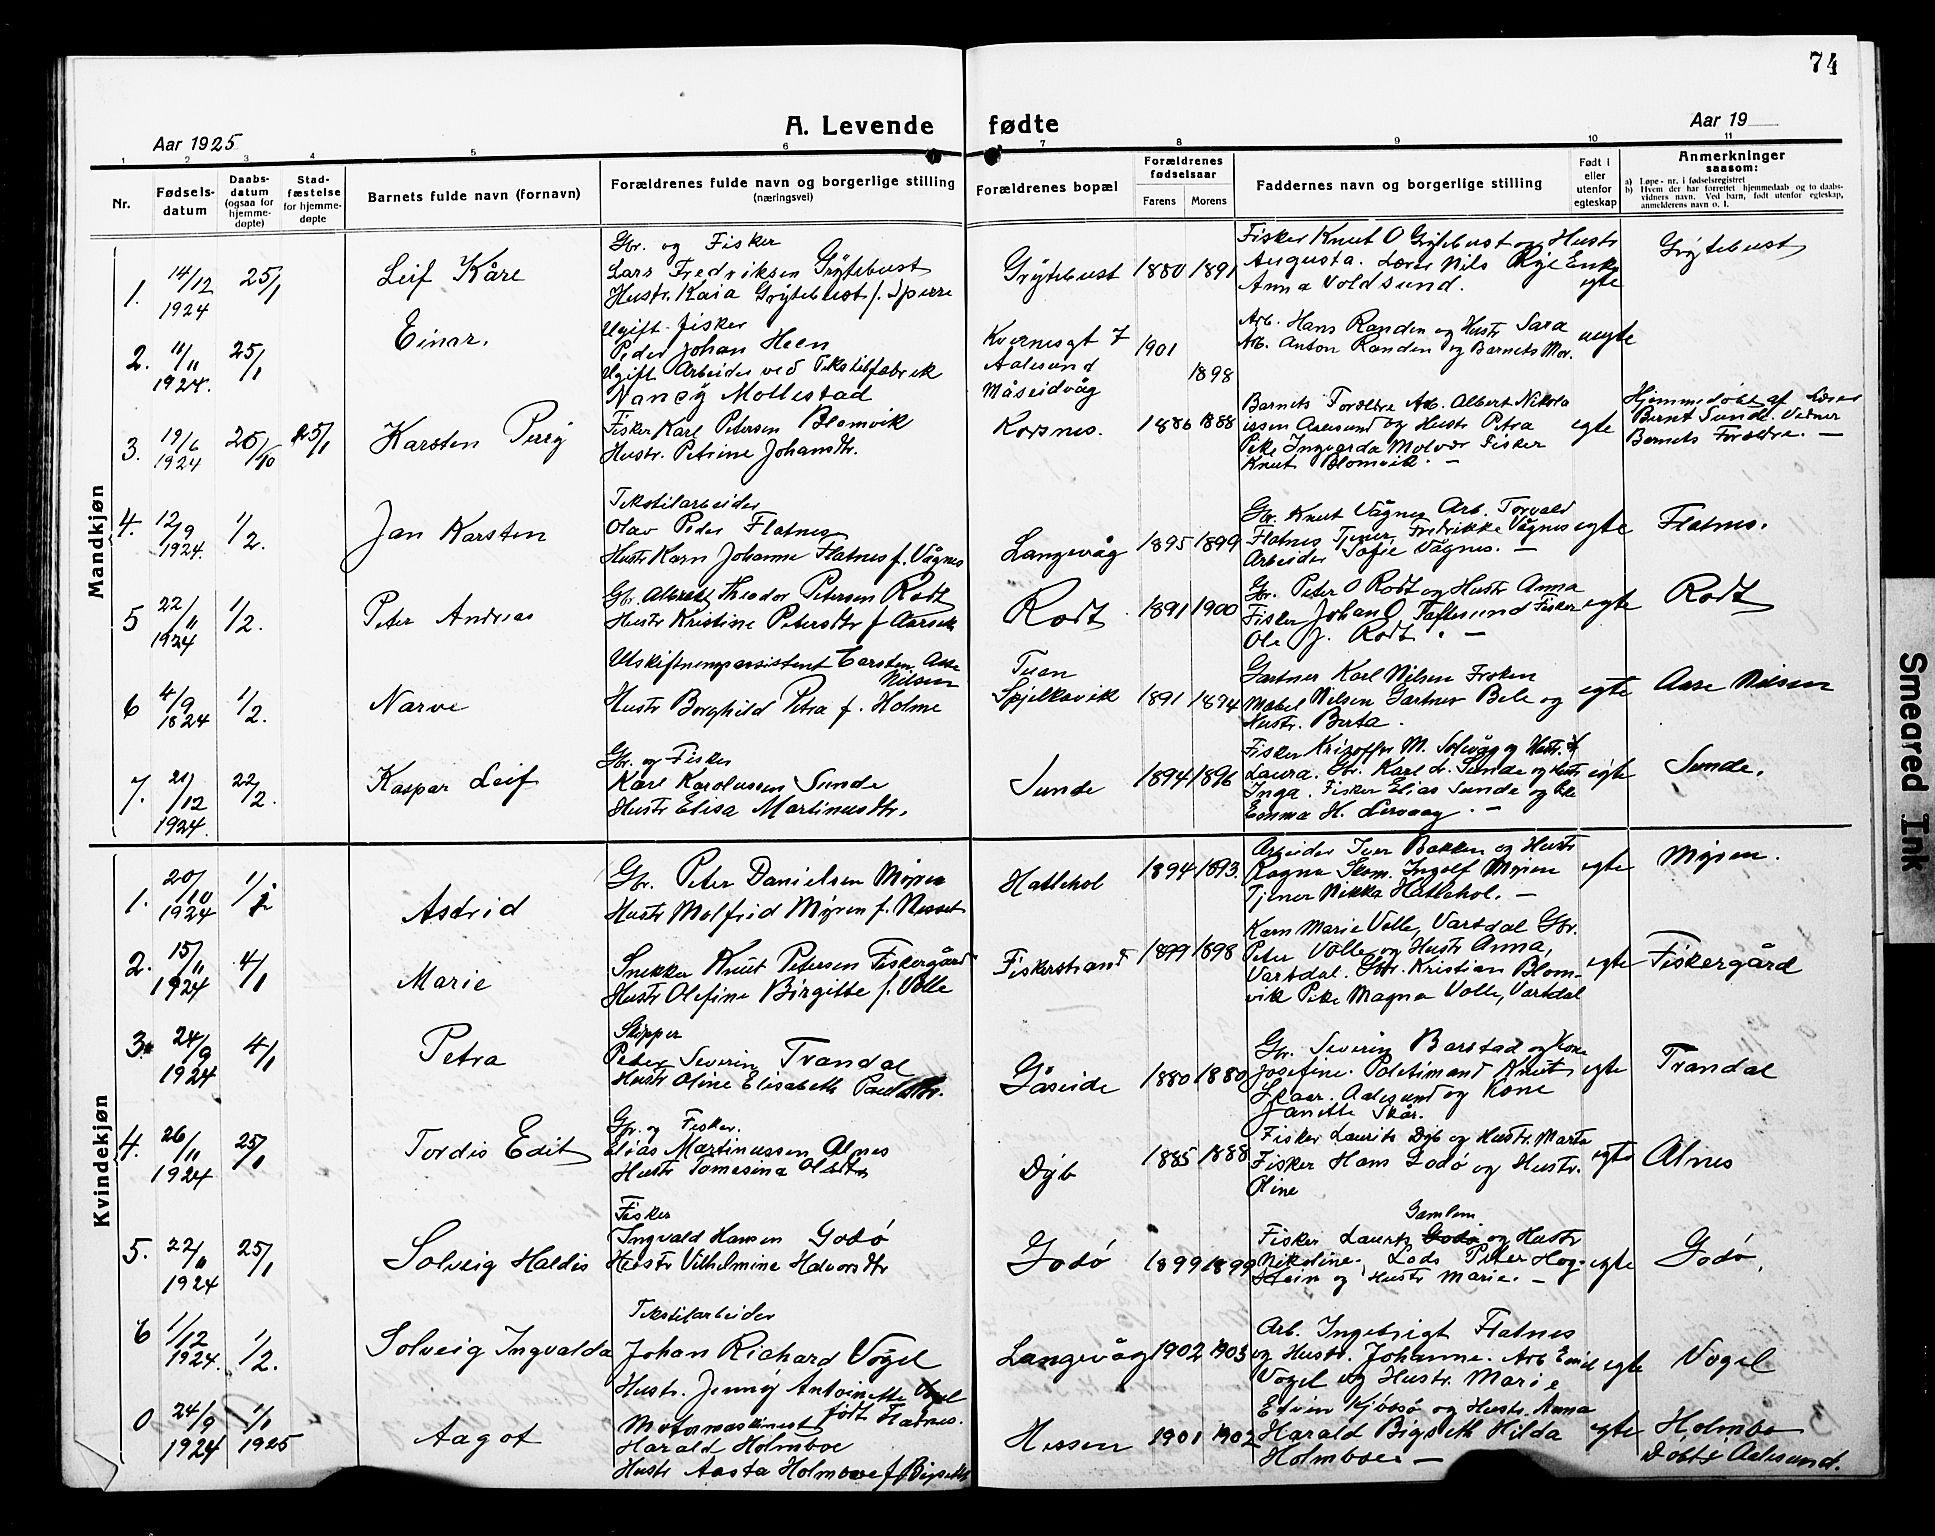 74
A. Levende fødte
Aar 1925
Aar 19
1 2 3 4 5 6 7 8 9 10 11
Nr.
Fødsels-
datum
Daabs-
datum
(ogsaa for
hjemme-
døpte)
Stad-
fæstelse
for hjemme-
døpte
Barnets fulde navn (fornavn)
Forældrenes fulde navn og borgerlige stilling
(næringsvei)
Forældrenes bopæl
Forældrenes
fødselsaar
Farens Morens
Faddernes navn og borgerlige stilling
Født i
eller
utenfor
egteskap
Anmerkninger
saasom:
a) Løpe-nr. i fødselsregistret
b) Hvem der har forrettet hjemmedaab og to daabs-
vidners navn. Ved barn, født utenfor egteskap,
anmelderens navn o. l.
Mandkjøn
1. 14/12 1924 25/1
Leif Kåre
Gbr. og Fisker
Lars Fredriksen Grytebust
Hustr. Kaia Grytebust f. Sperre
Grytebust 1880 1891
Fisker Knut O Grytebust og Hustr
Augusta. Lærer Nils Enke
Anna Voldsund.
egte
Grytebust
2. 11/11 1924. 25/1
Einar.
Ugift fisker
Peder Johan Heen
Ugift Arbeider ved Tekstilfabrik
Nancy Mollestad
Kvernesgt 7
Aalesund
Måseidvåg
1901
1898
Arb. Hans Randen og Hustr Sara
Arb. Anton Randen og Barnets Mor.
uegte
3. 19/6 1924 26/10 25/1
Karsten Perry
Fisker Karl Petersen Blomvik
Hustr. Petrine Johansdtr.
Korsnes. 1886 1888
Barnets Forældre Arb. Albert Nikola
issen Aalesund og Hustr Petra
Pike Ingvarda Molvær Fisker
Knut Blomvik. —
egte
Hjemmedøbt af Lærer
Bernt Sunde. Vidner
Barnets Forældre. —
4. 12/9 1924. 1/2.
Jan Karsten
Tekstilarbeider
Olav Peder Flatnes
Hustr Karn Johanne Flatnes f. Vågnes
Langevåg 1895 1899
Gbr. Knut Vågnes Arb. Torvald
Flatnes Tjener Fredrikke Vågnes
Arbeider Sofie Vågnes. —
egte
Flatnes.
5 22/11 1924 1/2.
Peter Andreas
Gbr. Albrekt Theodor Petersen Rødt
Hustr Kristine Petersdtr f Aarseth
Rødt 1891 1900
Gbr. Peter O Rødt og Hustr Anna
Fisker Johan O Taftesund Fisker
Ole J. Rødt. —
egte
Rødt
6 4/9 1824 1/2.
Narve
Utskiftningsassistent Carsten Aase
Nilsen
Hustr Borghild Petra f. Holme
Tuen
Spjelkavik 1891 1894
Gartner Karl Nilsen Frøken
Mabel Nilsen Gartner Bele og
Hustr. Berta.
egte
Aase Nilsen
7. 21/12 1924. 22/2.
Kaspar Leif
Gbr. og Fisker
Karl Karolussen Sunde
Hustr Elisa Martinusdtr.
Sunde 1894 1896
Fisker Kristoffer M. Solevåg og Hustr.
Laura. Gbr. Karl L. Sunde og Hustr
Inga. Fisker Elias Sunde og Pike
Emma H. Lervaag. —
egte
Sunde.
Kvindekjøn
1. 20/10 1924 1/2
Astrid
Gbr. Peter Danielsen Myren
Hustr Molfrid Myren f. Nesset
Hatlehol 1894 1893.
Arbeider Iver Bakken og Hustr
Ragna Skom. Ingolf Myren
Tjener Nikka Hatlehol. —
egte
Myren.
2. 15/11 1924 4/1
Marie
Snekker Knut Petersen Fiskergård
Hustr Olefine Birgitte f. Volle
Fiskerstrand 1899 1898
Karn Marie Volle, Vartdal Gbr.
Peter Volle og Hustr Anna,
Vartdal. Gbr. Kristian Blom-
vik Pike Magna Volle, Vartdal
egte
Fiskergård
3. 24/9 1924 4/1
Petra
Skipper
Peter Severin Trandal
Hustr Oline Elisabeth Paulsdtr.
Gåseide 1880 1880
Gbr. Severin Barstad og Kone
Josefine. Politimand Knut
Skaar. Aalesund og Kone
Janette Skår.
egte
Trandal
4. 26/11 1924 25/1
Tordis Edit
Gbr. og Fisker.
Elias Martinussen Alnes
Hustr Tomasina Olsdtr
Dyb 1885 1888
Fisker Laurits Dyb og Hustr. Marta
Fisker Hans Godø og Hustr.
Oline
egte
Alnes
5. 22/11 1924 25/1
Solveig Haldis
Fisker
Ingvald Hansen Godø
Hustr Vilhelmine Halvorsdtr
Godø 1899 1899
Gamlem
Fisker Laurits Godø og Hustr
Nikoline. Lods Peter Hog-
stein og Hustr Marie. —
egte
Godø,
6 1/12 1924. 1/2.
Solveig Ingvalda
Tekstilarbeider
Johan Richard Vogel
Hustr. Jenny Antoinette Vogel
født Flatnes.
Langevåg 1902 1903
Arb. Ingebrigt Flatnes
og Hustr. Johanne. Arb Emil
Vogel og Hustr. Marie
egte
Vogel
0 24/9 1924 1/1 1925
Aagot
Motormaskinist
Harald Holmboe
Hustr Aasta Holmboe f. Bigseth
Hessen 1901 1902
Edvin Kjøbsø og Hustr. Anna
Harald Bigseth Hilda
Holmboe. —
egte
Holmbo
Døbt i Aalesund.
Smeared Ink